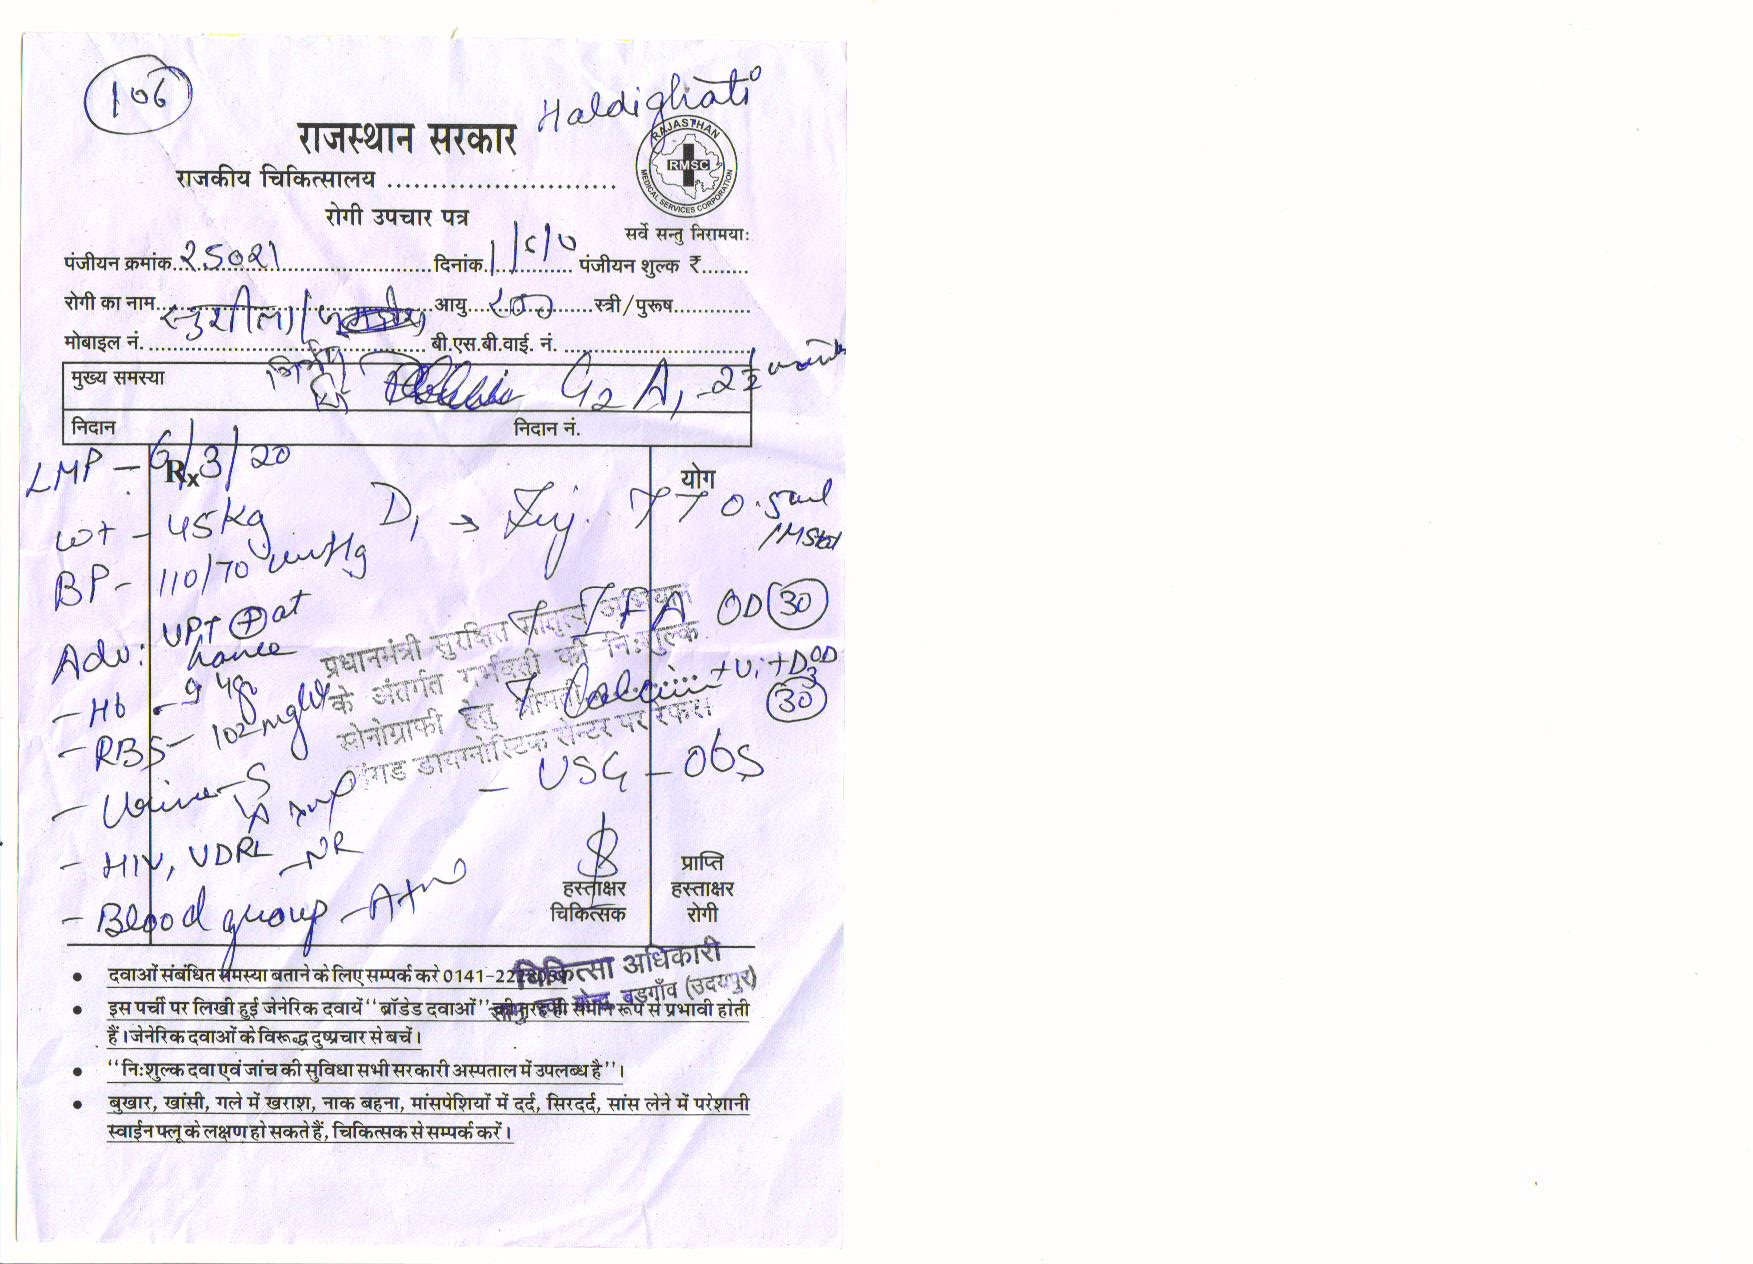 106
Haldighati
राजस्थान सरकार
राजकीय चिकित्सालय ..........................
रोगी उपचार पत्र
RAJASTHAN
RMSC
MEDICAL SERVICES CORPORATION
सर्वे सन्तु निरामयाः
पंजीयन क्रमांक 25021 दिनांक पंजीयन शुल्क ₹........
रोगी का नाम सुशीला/ आयु स्त्री/पुरूष
मोबाइल नं. बी.एस.बी.वाई. नं.
मुख्य समस्या G2 A1 - 2½
निदान निदान नं.
LMP - 6/3/20
Rx योग
wt - 45 kg D1 → Inj. TT 0.5ml
IM Stat
BP - 110/70 mmHg
Adv: UPT (+) at T IFA OD (30)
T Calcium + Vi + D3 OD
(30)
- Hb - 9.4g
- RBS - 102 mg/dl
- Urine - S
- USG - Obs
- HIV, VDRL - NR
- Blood group - A+ve
प्रधानमंत्री सुरक्षित मातृत्व अभियान
के अंतर्गत गर्भवती की निःशुल्क
सोनोग्राफी हेतु श्रीमती
डायग्नोस्टिक सेन्टर पर रेफर।
हस्ताक्षर
चिकित्सक
प्राप्ति
हस्ताक्षर
रोगी
चिकित्सा अधिकारी
बड़गाँव (उदयपुर)
• दवाओं संबंधित समस्या बताने के लिए सम्पर्क करे
• इस पर्ची पर लिखी हुई जेनेरिक दवायें "ब्रॉडेड दवाओं" की तरह ही समान रूप से प्रभावी होती
हैं। जेनेरिक दवाओं के विरूद्ध दुष्प्रचार से बचें।
• "निःशुल्क दवा एवं जांच की सुविधा सभी सरकारी अस्पताल में उपलब्ध है"।
• बुखार, खांसी, गले में खराश, नाक बहना, मांसपेशियों में दर्द, सिरदर्द, सांस लेने में परेशानी
स्वाईन फ्लू के लक्षण हो सकते हैं, चिकित्सक से सम्पर्क करें।